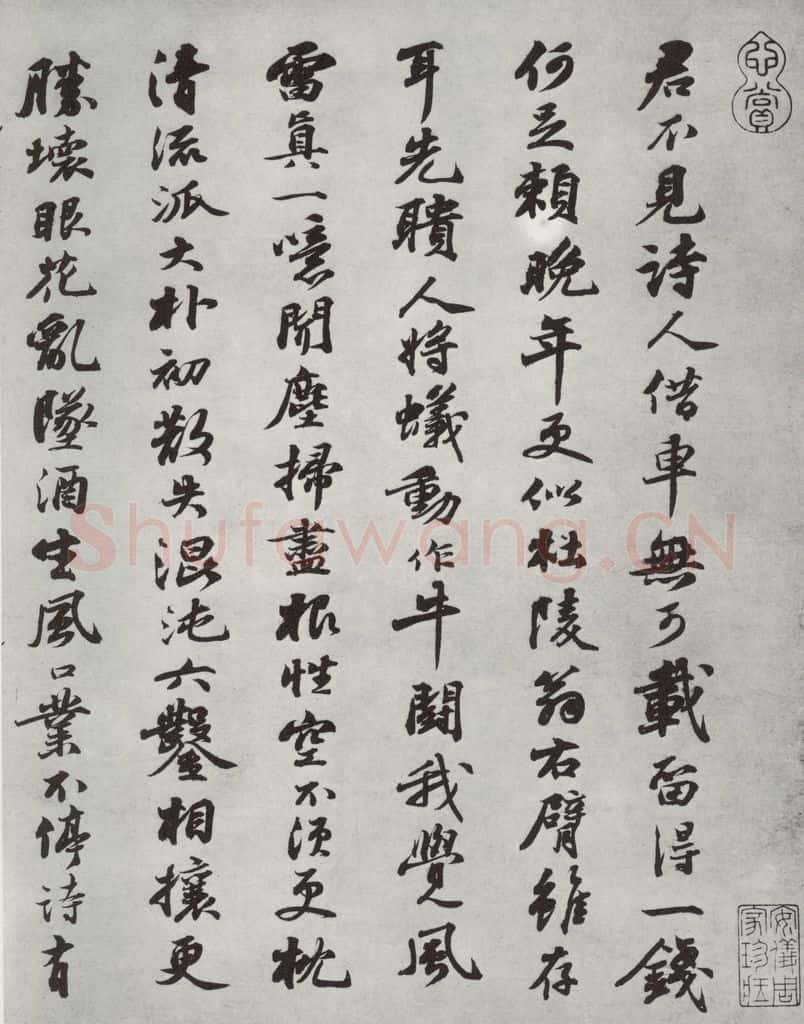 心賞
君不見詩人借車無可載留得一錢
何足賴晚年更似杜陵翁右臂雖存
耳先聵人將蟻動作牛鬭我覺風
雷真一噫聞塵掃盡根性空不須更枕
清流派大朴初散失混沌六鑿相攘更
勝壞眼花亂墜酒生風口業不停詩有
安儀周家珍藏
Shufawang.CN